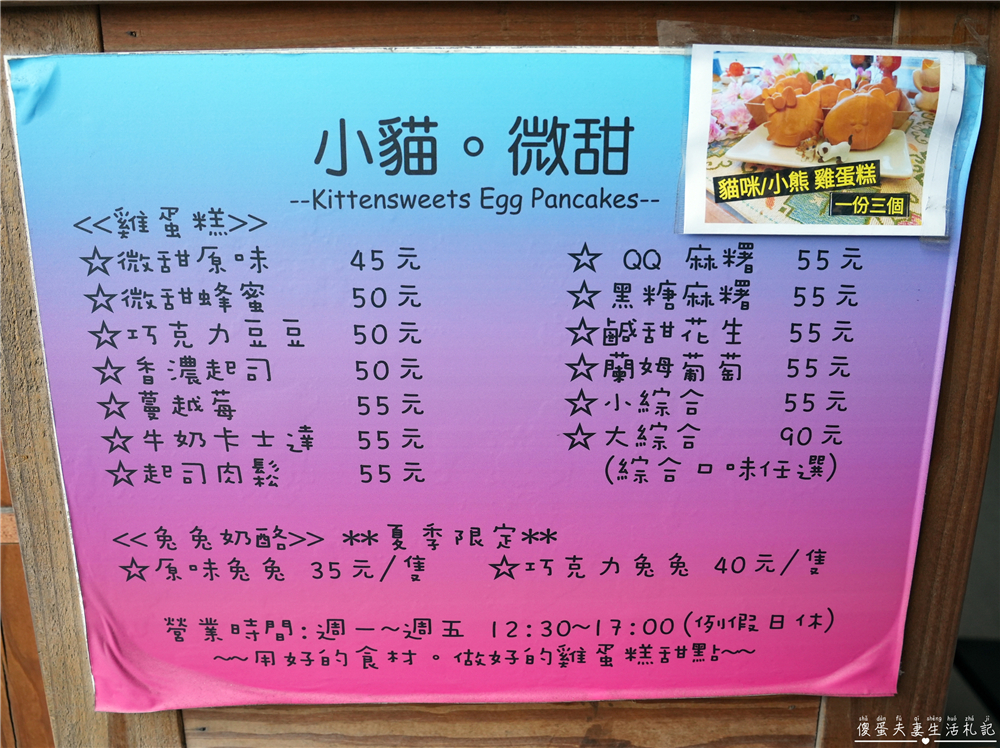 小貓。微甜
--Kittensweets Egg Pancakes--
貓咪/小熊 雞蛋糕
一份三個
<<雞蛋糕>>
☆微甜原味 45元
☆微甜蜂蜜 50元
☆巧克力豆豆 50元
☆香濃起司 50元
☆蔓越莓 55元
☆牛奶卡士達 55元
☆起司肉鬆 55元
☆ QQ 麻糬 55元
☆黑糖麻糬 55元
☆鹹甜花生 55元
☆蘭姆葡萄 55元
☆小綜合 55元
☆大綜合 90元
(綜合口味任選)
<<兔兔奶酪>> **夏季限定**
☆原味兔兔 35元/隻 ☆巧克力兔兔 40元/隻
營業時間:週一~週五 12:30~17:00(例假日休)
~~用好的食材。做好的雞蛋糕甜點~~
shǎ dàn fū qī shēng huó zhá jì
傻蛋夫妻生活札記